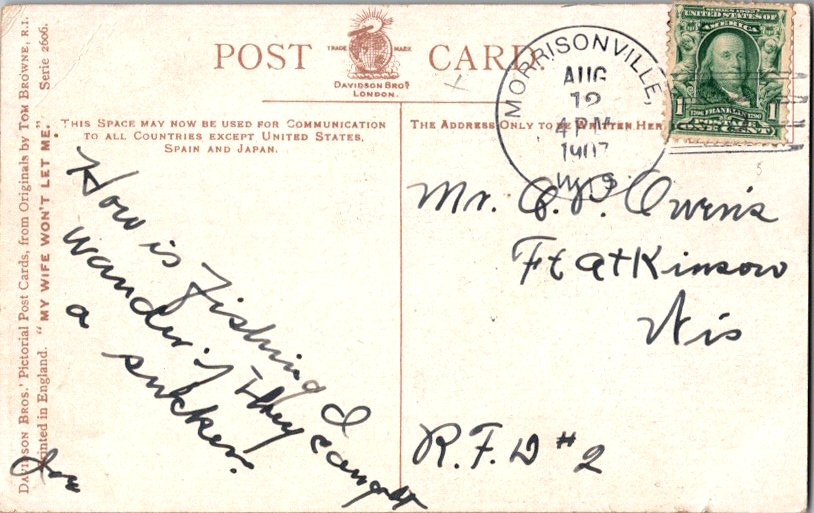 POST CARD.
TRADE MARK
DAVIDSON BROS
LONDON.
THIS SPACE MAY NOW BE USED FOR COMMUNICATION
TO ALL COUNTRIES EXCEPT UNITED STATES,
SPAIN AND JAPAN.
THE ADDRESS ONLY TO BE WRITTEN HER
MORRISONVILLE,
AUG
12
4 PM
1907
WIS
SERIES 1902
UNITED STATES OF
AMERICA
1 1
FRANKLIN
ONE CENT
DAVIDSON BROS.' Pictorial Post Cards, from Originals by TOM BROWNE, R.I.
Printed in England. "MY WIFE WON'T LET ME." Serie 2606.
How is fishing I
wander if they caught
a sucker.
Joe
Mr. O. P. Owens
Ft Atkinson
Wis
R.F.D #2